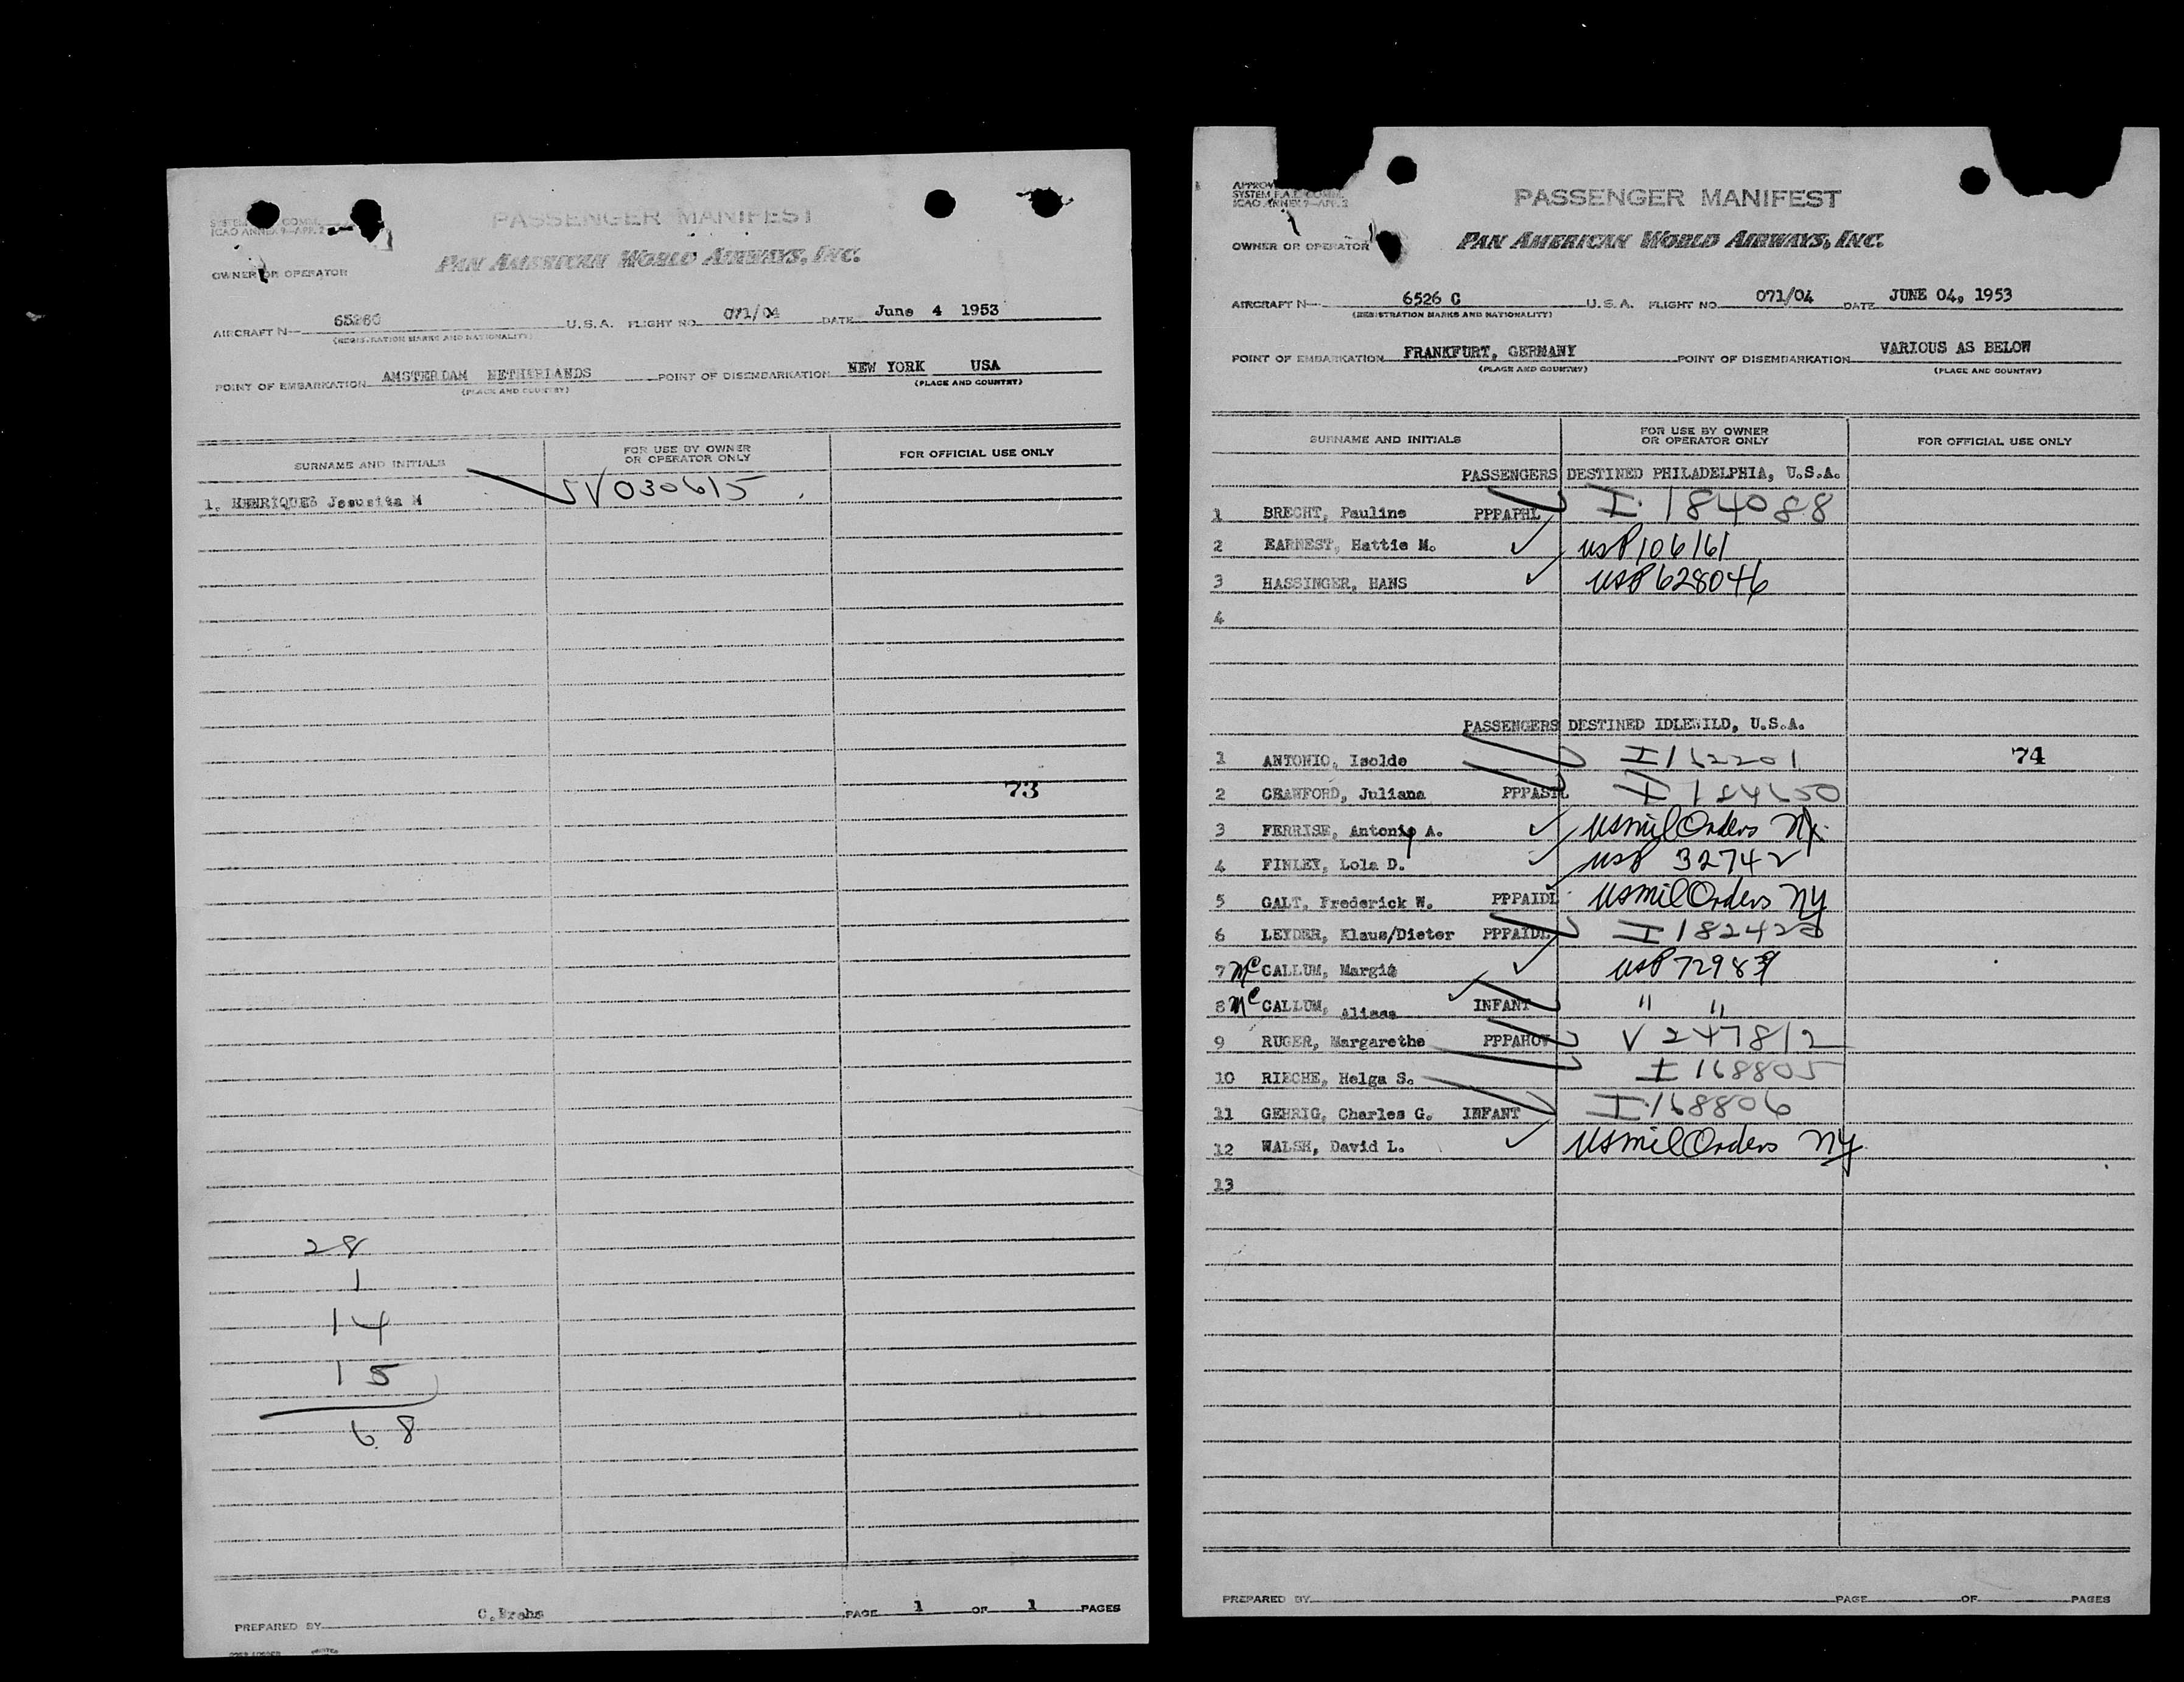 SYSTEM COMM.
ICAO ANNEX 9-APP. 2
PASSENGER MANIFEST
OWNER OR OPERATOR
PAN AMERICAN WORLD AIRWAYS, INC.
AIRCRAFT N 6526C U.S.A. FLIGHT NO. 071/04 DATE June 4 1953
(REGISTRATION MARKS AND NATIONALITY)
POINT OF EMBARKATION AMSTERDAM NETHERLANDS POINT OF DISEMBARKATION NEW YORK USA
(PLACE AND COUNTRY) (PLACE AND COUNTRY)
SURNAME AND INITIALS FOR USE BY OWNER OR OPERATOR ONLY FOR OFFICIAL USE ONLY
1. HENRIQUES Jesusita M V030615
73
28
1
14
15
68
PREPARED BY PAGE 1 OF 1 PAGES
SYSTEM F.A.L. COMM.
ICAO ANNEX 9-APP. 2
PASSENGER MANIFEST
OWNER OR OPERATOR
PAN AMERICAN WORLD AIRWAYS, INC.
AIRCRAFT N 6526 C U.S.A. FLIGHT NO. 071/04 DATE JUNE 04, 1953
(REGISTRATION MARKS AND NATIONALITY)
POINT OF EMBARKATION FRANKFURT, GERMANY POINT OF DISEMBARKATION VARIOUS AS BELOW
(PLACE AND COUNTRY) (PLACE AND COUNTRY)
SURNAME AND INITIALS FOR USE BY OWNER OR OPERATOR ONLY FOR OFFICIAL USE ONLY
PASSENGERS DESTINED PHILADELPHIA, U.S.A.
1 BRECHT, Pauline PPPAPHL I 184088
2 EARNEST, Hattie M. USP 106161
3 HASSINGER, HANS USP 628046
4
PASSENGERS DESTINED IDLEWILD, U.S.A.
1 ANTONIO, Isolde I 162201 74
2 CRAWFORD, Juliana PPPASTL I 184650
3 FERRISE, Antonio A. USmil Orders NY
4 FINLEY, Lola D. USP 32742
5 GALT, Frederick W. PPPAIDL USmil Orders NY
6 LEYDER, Klaus/Dieter PPPAIDL I 18242
7 Mc CALLUM, Margit USP 72989
8 Mc CALLUM, Alissa INFANT " "
9 RUGER, Margarethe PPPAHOV V 247812
10 RIECHE, Helga S. I 168805
11 GEHRIG, Charles G. INFANT I 168806
12 WALSH, David L. USmil Orders NY
13
PREPARED BY PAGE OF PAGES